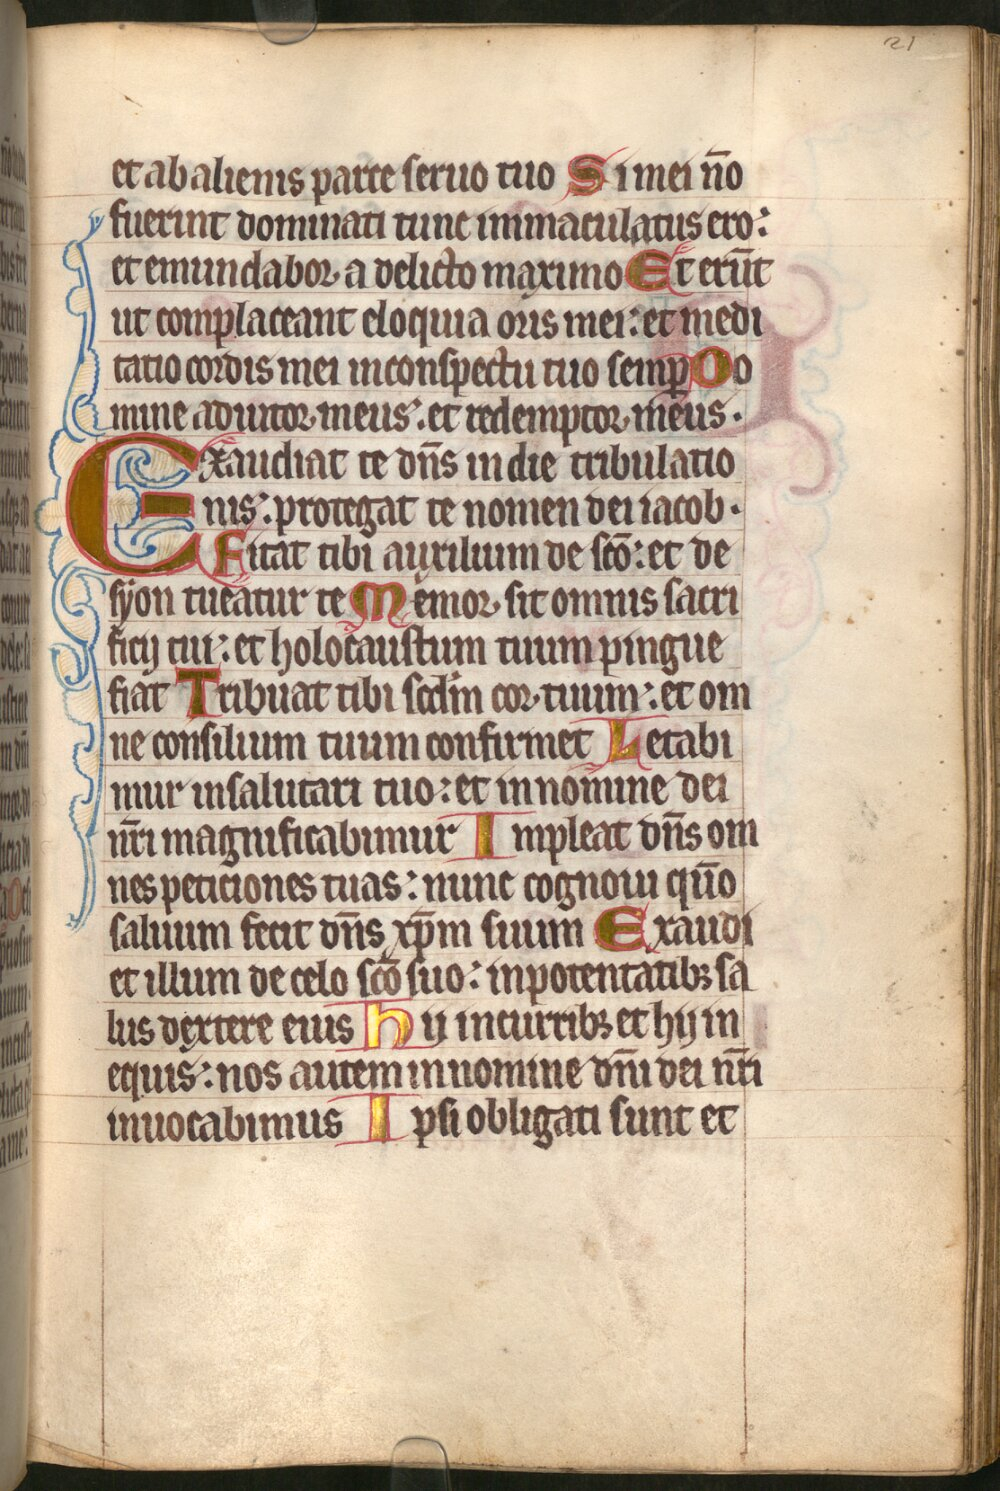 21
et ab alienis parce seruo tuo Si mei no̅
fuerint dominati tunc immaculatus ero:
et emundabor a delicto maximo Et eru̅t
ut complaceant eloquia oris mei: et medi
tatio cordis mei in conspectu tuo semꝑ Do
mine adiutor meus: et redemptor meus.
Exaudiat te dn̅s in die tribulatio
nis: protegat te nomen dei iacob.
Mittat tibi auxilium de sco̅: et de
syon tueatur te Memor sit omnis sacri
ficij tui: et holocaustum tuum pingue
fiat Tribuat tibi scd̅m cor tuum: et om
ne consilium tuum confirmet Letabi
mur in salutari tuo: et in nomine dei
nr̅i magnificabimur Impleat dn̅s om
nes peticiones tuas: nunc cognoui quo̅
saluum fecit dn̅s xp̅m suum Exaudi
et illum de celo sco̅ suo: in potentatibꝫ sa
lus dextere eius Hij in curribꝫ et hij in
equis: nos autem in nomine dn̅i dei nr̅i
inuocabimus Ipsi obligati sunt et